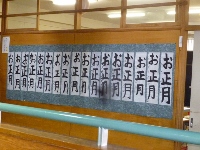 お正月
お正月
お正月
お正月
お正月
お正月
お正月
お正月
お正月
お正月
お正月
お正月
お正月